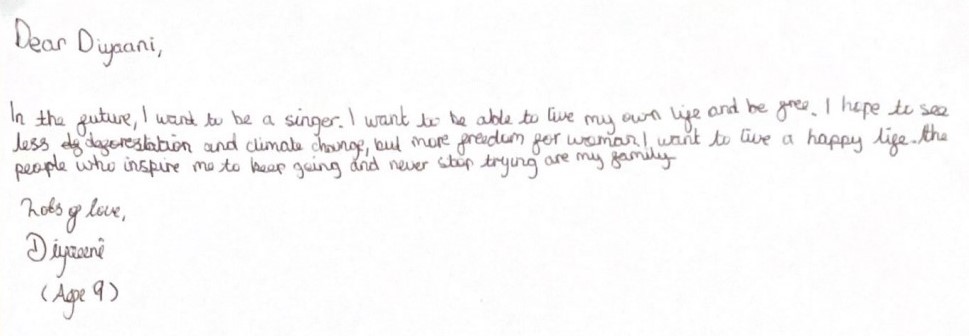 Dear Diyaani,
In the future, I want to be a singer. I want to be able to live my own life and be free. I hope to see
less deforestation and climate change, but more freedom for woman. I want to live a happy life. the
people who inspire me to keep going and never stop trying are my family
Lots of love,
Diyaani
(Age 9)